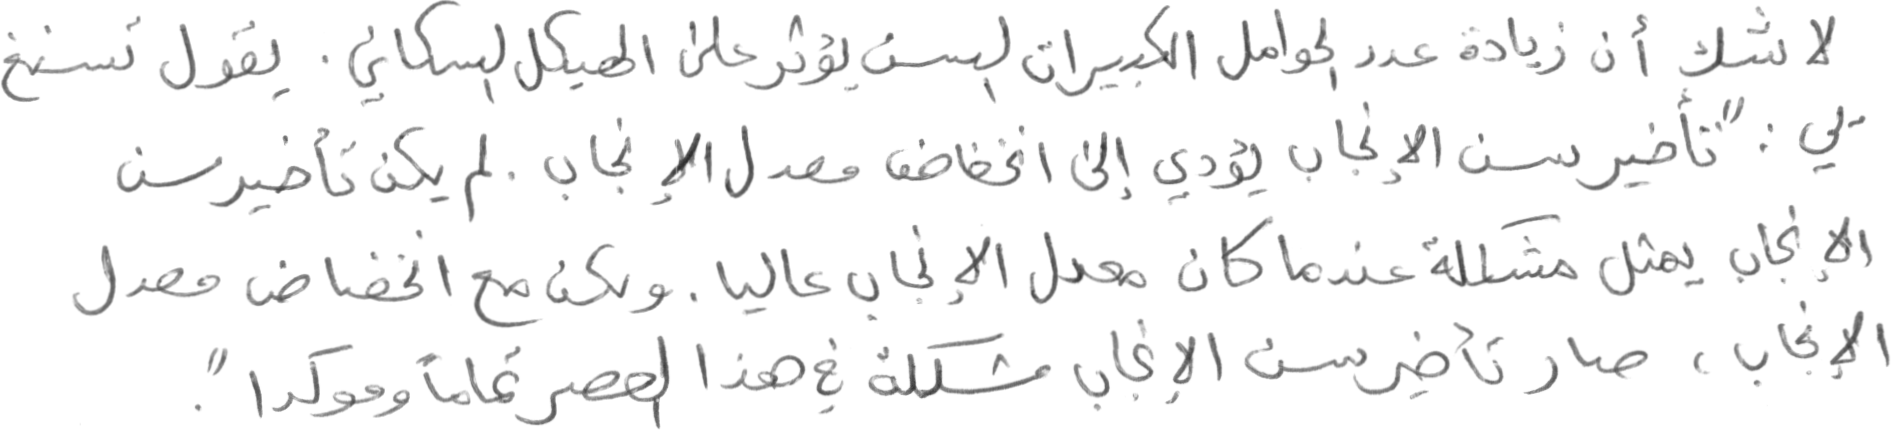 لا شك أن زيادة عدد الحوامل الكبيرات السن يؤثر على الهيكل السكاني. يقول تسنغ
يي: "تأخير سن الإنجاب يؤدي إلى انخفاض معدل الإنجاب. لم يكن تأخير سن
الإنجاب يمثل مشكلة عندما كان معدل الإنجاب عاليا. ولكن مع انخفاض معدل
الإنجاب، صار تأخير سن الإنجاب مشكلة في هذا العصر تماماً وموكدا".